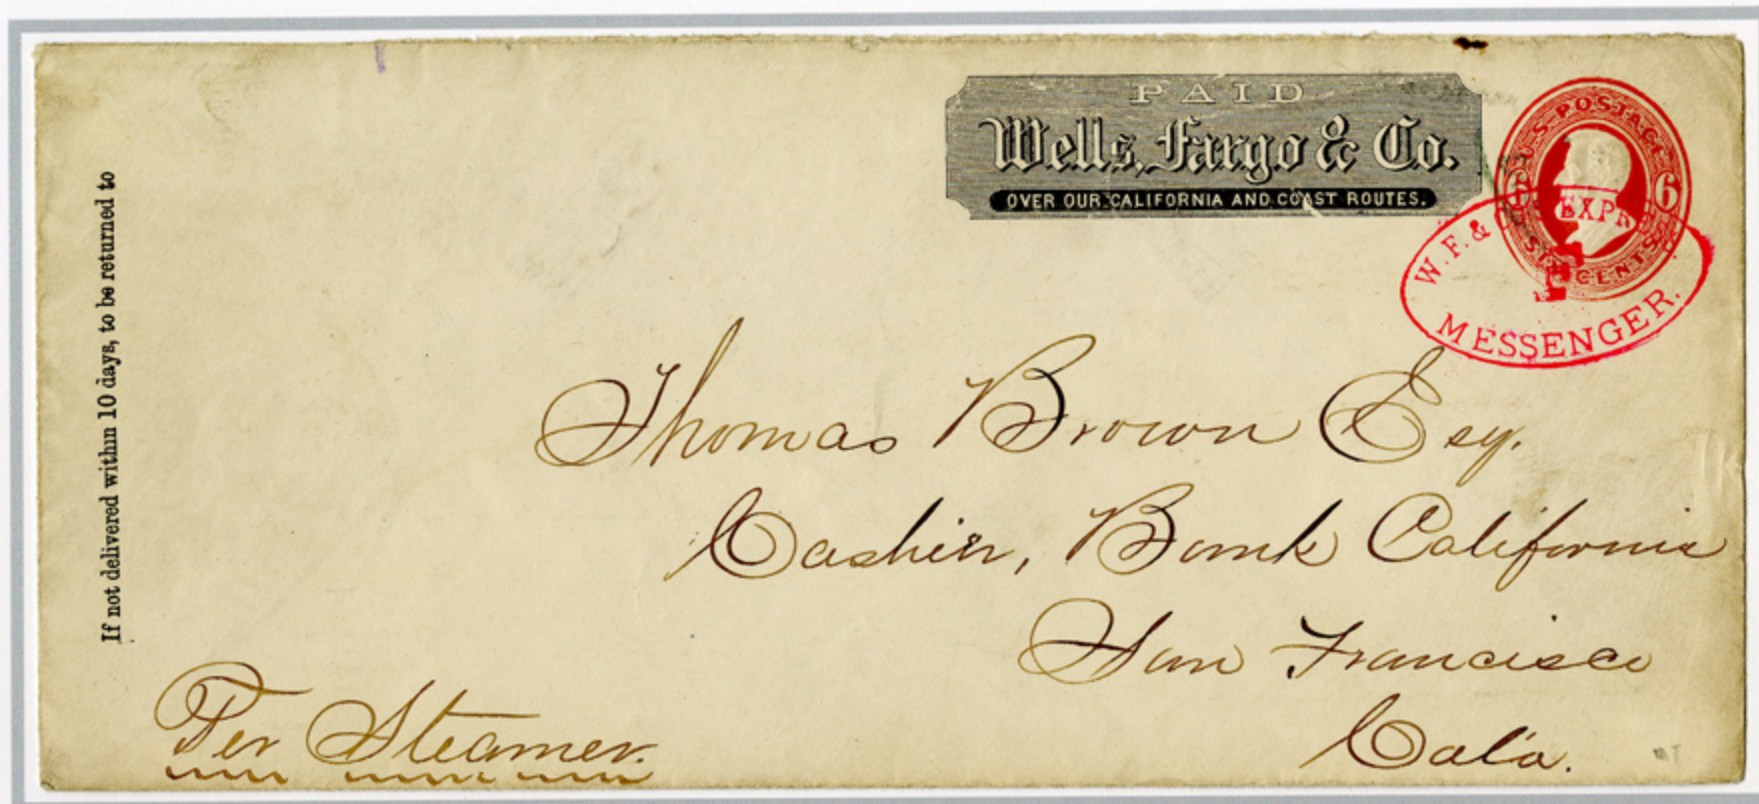 If not delivered within 10 days, to be returned to
PAID
Wells, Fargo & Co.
OVER OUR CALIFORNIA AND COAST ROUTES.
U.S. POSTAGE
6 6
SIX CENTS
W. F. & EXPR
MESSENGER.
Thomas Brown Esq.
Cashier, Bank California
San Francisco
Cala.
Per Steamer.